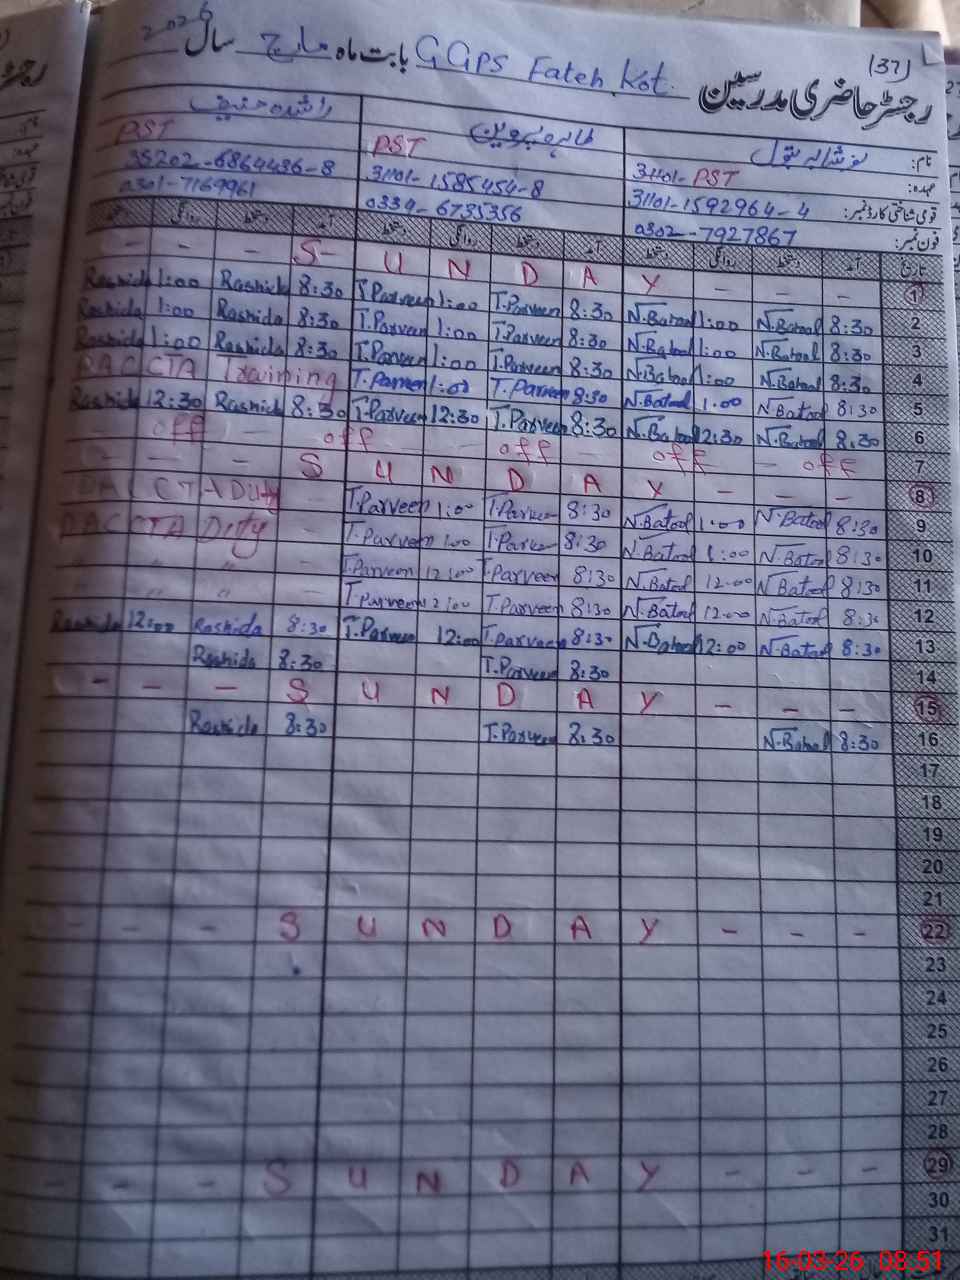 (37)
رجسٹر حاضری مدرسین GGPS Fateh Kot. بابت ماہ مارچ سال 2026
نام: طاہرہ پروین راشدہ حنیف
عہدہ: 31101- PST PST PST
قومی شناختی کارڈ نمبر: 31101-1592964-4 31101-1585454-8 35202-6864436-8
فون نمبر: 0302-7927867 0334-6735356 0301-7169961
تاریخ آمد دستخط روانگی دستخط آمد دستخط روانگی دستخط آمد دستخط روانگی دستخط
- - - S- U N D A Y - - - 1
Rashida 1:00 Rashida 8:30 T.Parveen 1:00 T.Parveen 8:30 N.Batool 1:00 N.Batool 8:30 2
Rashida 1:00 Rashida 8:30 T.Parveen 1:00 T.Parveen 8:30 N.Batool 1:00 N.Batool 8:30 3
Rashida 1:00 Rashida 8:30 T.Parveen 1:00 T.Parveen 8:30 N.Batool 1:00 N.Batool 8:30 4
PAC CTA Training T.Parveen 1:00 T.Parveen 8:30 N.Batool 1:00 N.Batool 8:30 5
Rashida 12:30 Rashida 8:30 T.Parveen 12:30 T.Parveen 8:30 N.Batool 12:30 N.Batool 8:30 6
off - off - off - off - off 7
- - - S U N D A Y - - - 8
CTA Duty - T.Parveen 1:00 T.Parveen 8:30 N.Batool 1:00 N.Batool 8:30 9
PAC CTA Duty - T.Parveen 1:00 T.Parveen 8:30 N.Batool 1:00 N.Batool 8:30 10
" " " - T.Parveen 12:00 T.Parveen 8:30 N.Batool 12:00 N.Batool 8:30 11
" " " - T.Parveen 12:00 T.Parveen 8:30 N.Batool 12:00 N.Batool 8:30 12
Rashida 12:00 Rashida 8:30 T.Parveen 12:00 T.Parveen 8:30 N.Batool 12:00 N.Batool 8:30 13
Rashida 8:30 T.Parveen 8:30 14
- - - S U N D A Y - - - 15
Rashida 8:30 T.Parveen 8:30 N.Batool 8:30 16
17
18
19
20
21
- - - S U N D A Y - - - 22
23
24
25
26
27
28
- - - S U N D A Y - - - 29
30
31
16-03-26 08:51